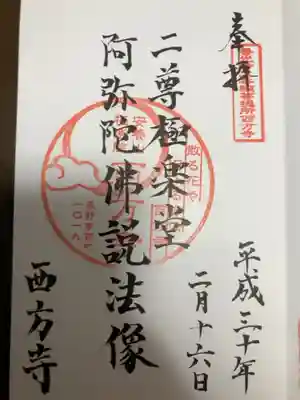 奉拝
平成三十年
二月十六日
二尊極楽堂
阿弥陀佛説法像
西方寺